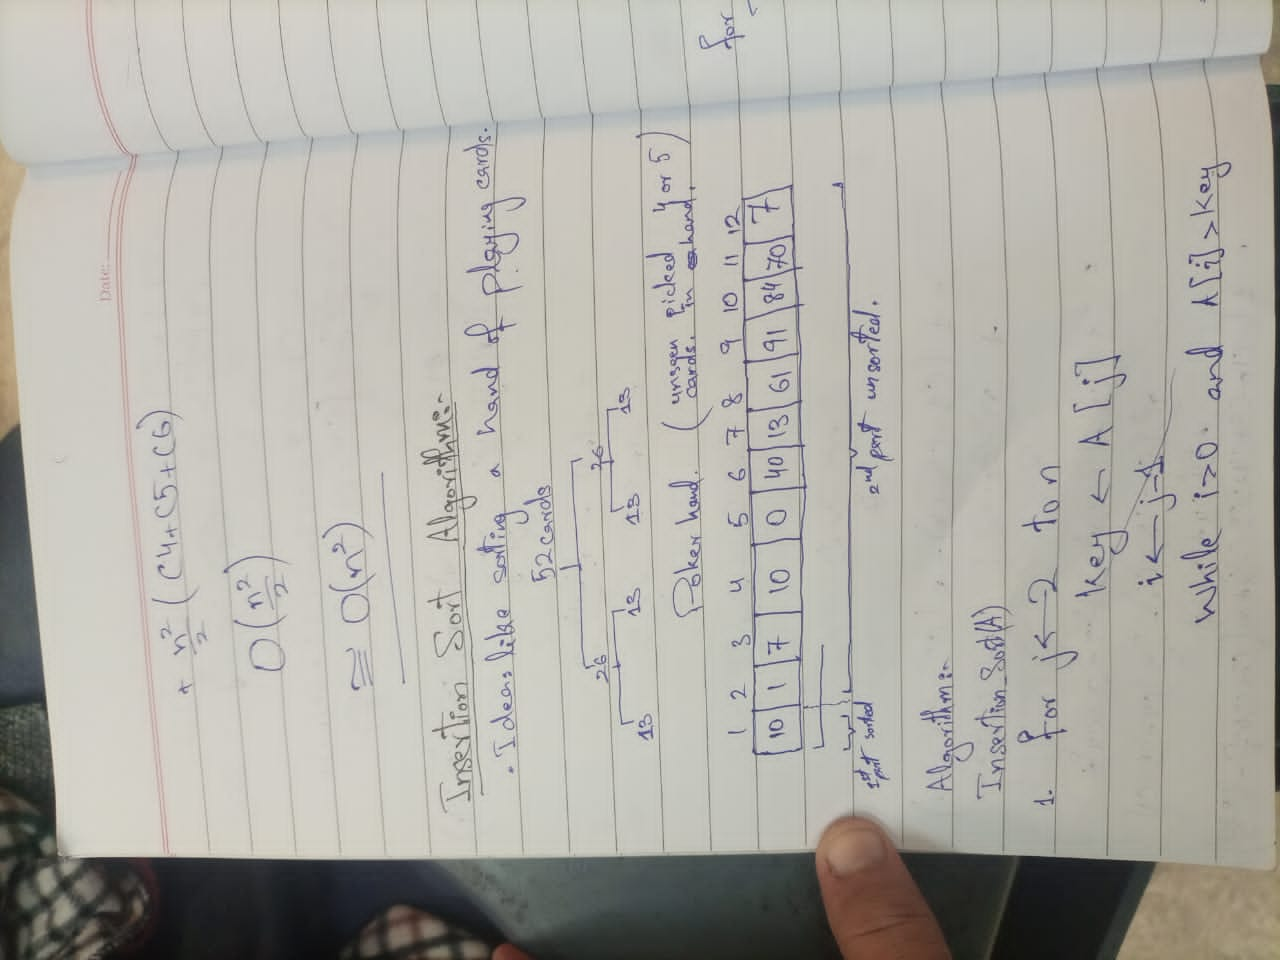 Date:
+ n²/2 (C4+C5+C6)
O(n²/2)
≅ O(n²)
Insertion Sort Algorithm:-
• Ideas like sorting a hand of playing cards.
52 cards
26 26
13 13 13 13
Poker hand. (unseen picked 4 or 5
cards. in hand.)
1 2 3 4 5 6 7 8 9 10 11 12
10 1 7 10 0 40 13 61 91 84 70 7
1st part sorted
2nd part unsorted.
Algorithm:-
Insertion_Sort(A)
1. for j ← 2 to n
Key ← A[j]
i ← j-1
while i>0 and A[i]>key
for